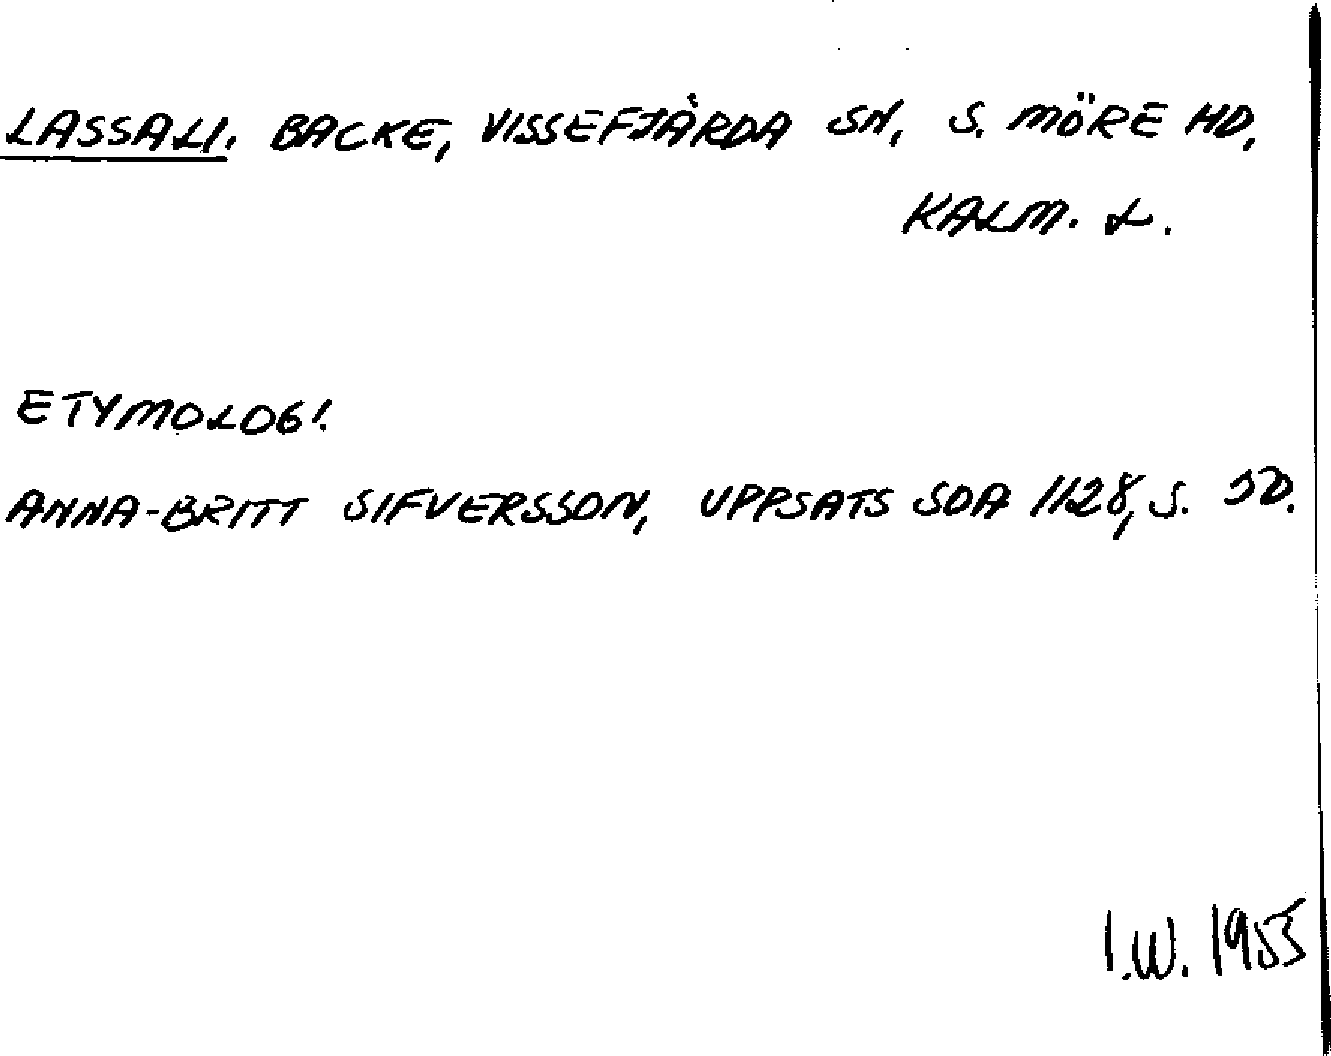 LASSALI. BACKE, VISSEFJÄRDA SN, S. MÖRE HD,
KALM. L.
ETYMOLOGI.
ANNA-BRITT SIFVERSSON, UPPSATS SOA 1128, S.
I.W. 1953